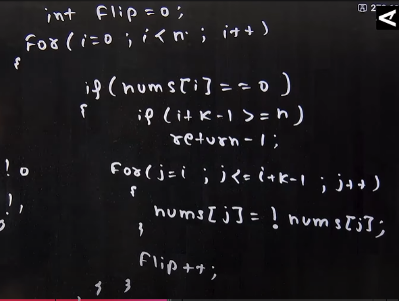 int flip = 0;
for (i=0 ; i<n ; i++)
{
if (nums[i] == 0)
{ if (i+k-1 >= n)
return -1;
for (j=i ; j<=i+k-1 ; j++)
{
nums[j] = ! nums[j];
}
flip++;
} }
! 0